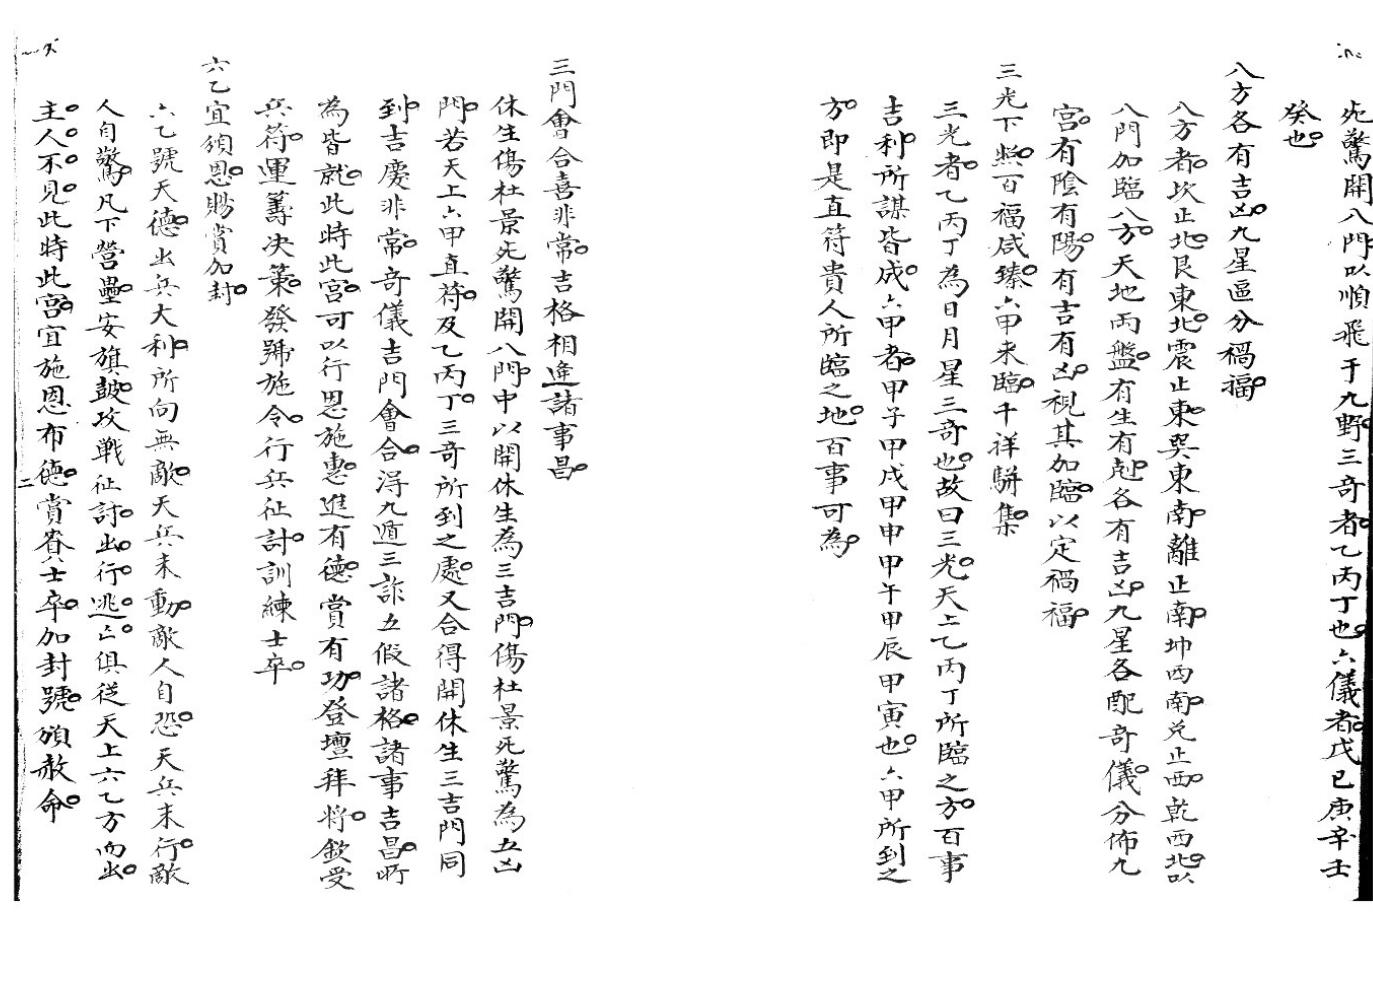 死驚開八門以順飛于九野三奇者乙丙丁也六儀者戊已庚辛壬
癸也
八方各有吉凶九星區分禍福
八方者坎止北艮東北震止東巽東南離止南坤西南兌止西乾西北以
八門加臨八方天地両盤有生有剋各有吉凶九星各配奇儀分佈九
宮有陰有陽有吉有凶視其加臨以定禍福
三光下照百福咸臻六甲来臨千祥駢集
三光者乙丙丁為日月星三奇也故曰三光天上乙丙丁所臨之方百事
吉利所謀皆成六甲者甲子甲戌甲申甲午甲辰甲寅也六甲所到之
方即是直符貴人所臨之地百事可為
三門會合喜非常吉格相逢諸事昌
休生傷杜景死驚開八門中以開休生為三吉門傷杜景死驚為五凶
門若天上六甲直符及乙丙丁三奇所到之處又合得開休生三吉門同
到吉慶非常奇儀吉門會合得九遁三詐五假諸格諸事吉昌所
為皆就此時此宮可以行恩施惠進有德賞有功登壇拜將欽受
兵符運籌决策發號施令行兵征討訓練士卒
六乙宜頒恩賜賞加封
六乙號天德出兵大利所向無敵天兵未動敵人自恐天兵未行敵
人自驚凡下營壘安旗鼓攻戰征討出行逃亡俱從天上六乙方而出
主人不見此時此宮宜施恩布德賞賚士卒加封號頒赦命
二